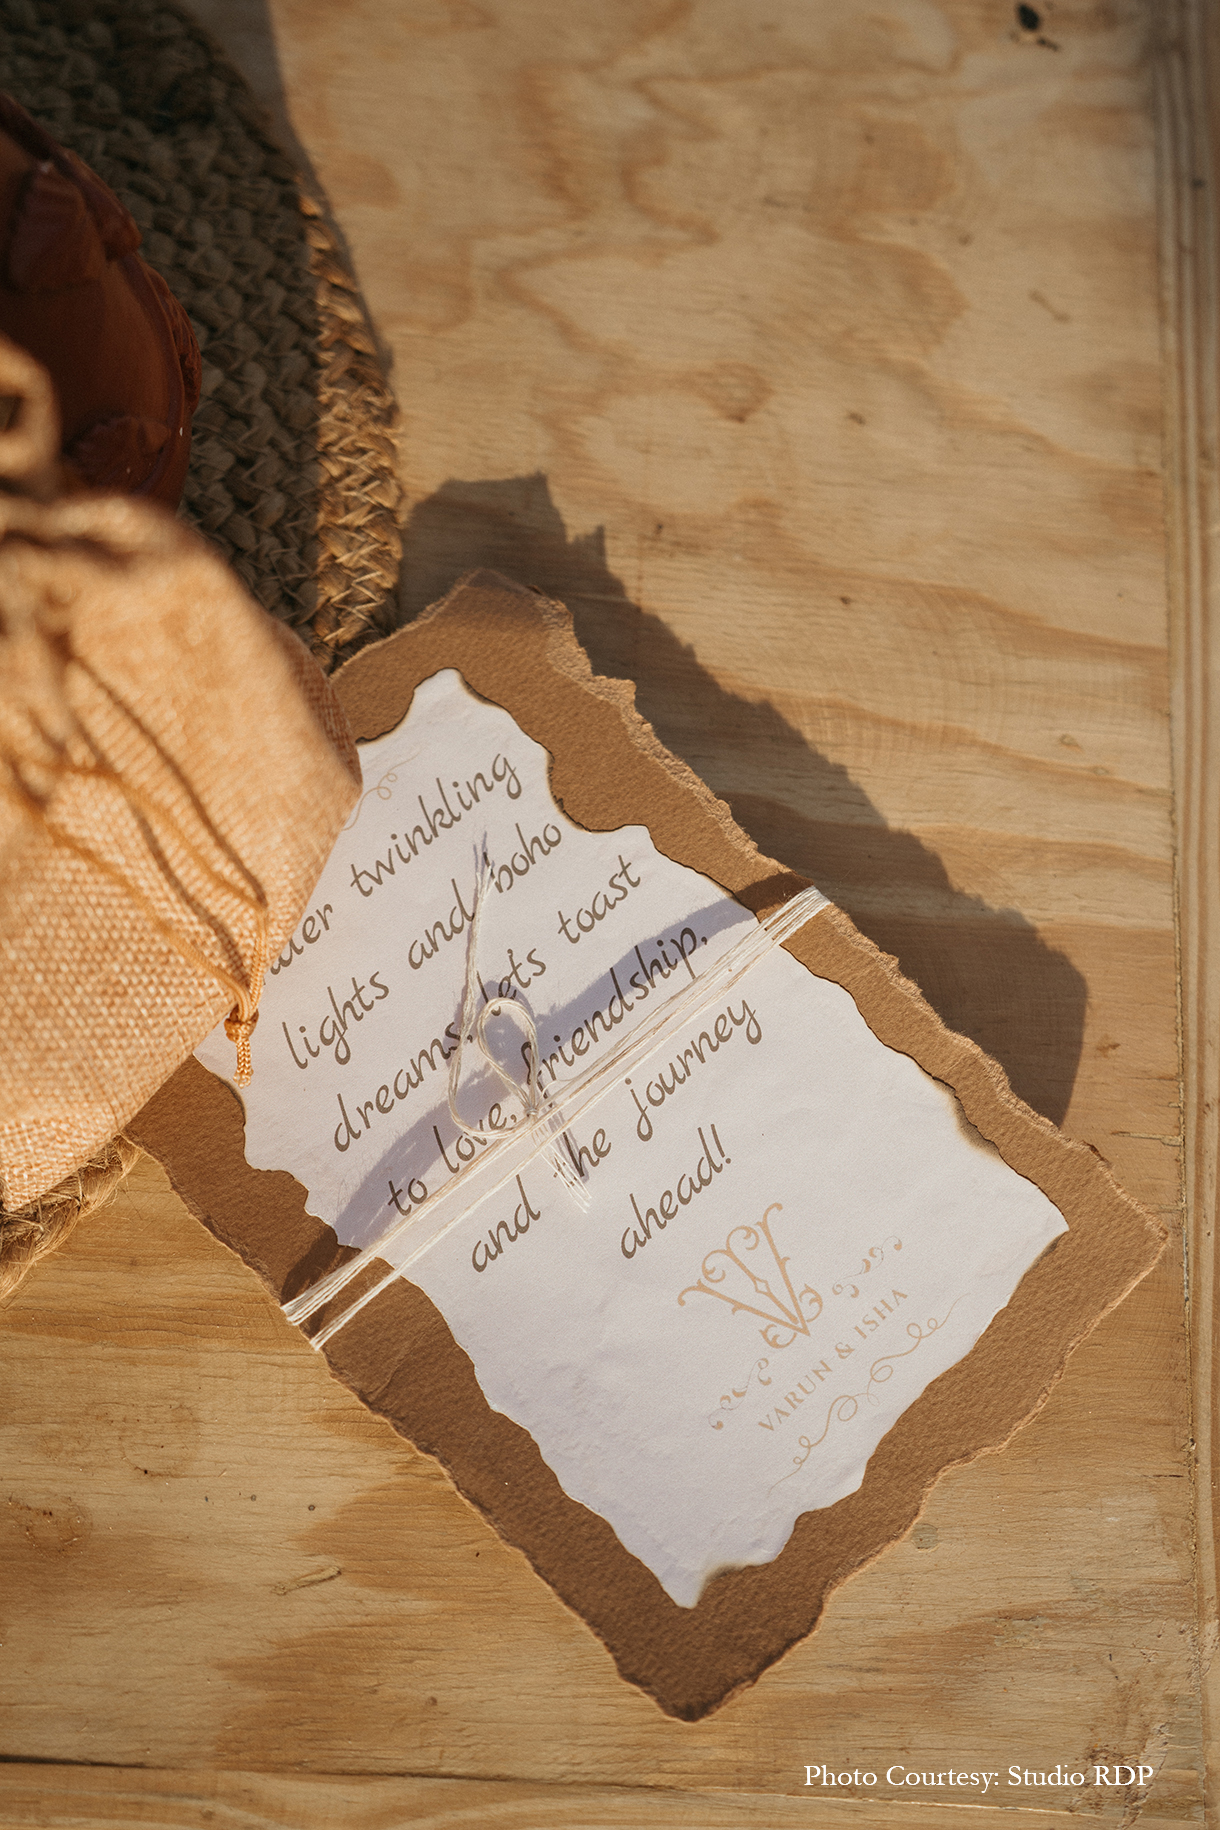 twinkling
lights and boho
dreams, let's toast
to love, friendship,
and the journey
ahead!
VARUN & ISHA
Photo Courtesy: Studio RDP